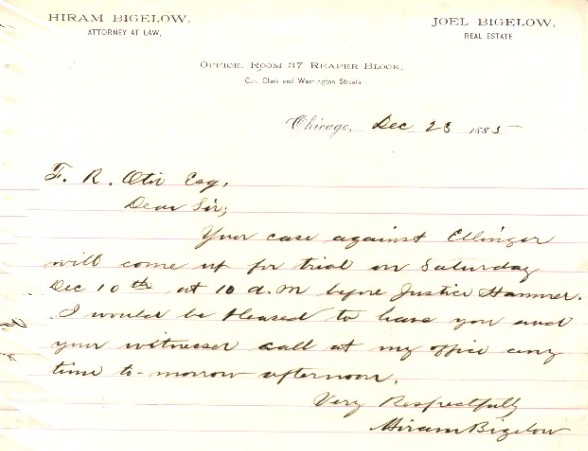 HIRAM BIGELOW,
ATTORNEY AT LAW,
JOEL BIGELOW,
REAL ESTATE
OFFICE, ROOM 37 REAPER BLOCK,
Cor. Clark and Washington Streets
Chicago, Dec 23 1885
F. R. Otis Esq.
Dear Sir;
Your case against Ellinger
will come up for trial on Saturday
Dec 10th at 10 a.m before Justice Hammer.
I would be pleased to have you and
your witnesses call at my office any
time to-morrow afternoon.
Very Respectfully
Hiram Bigelow